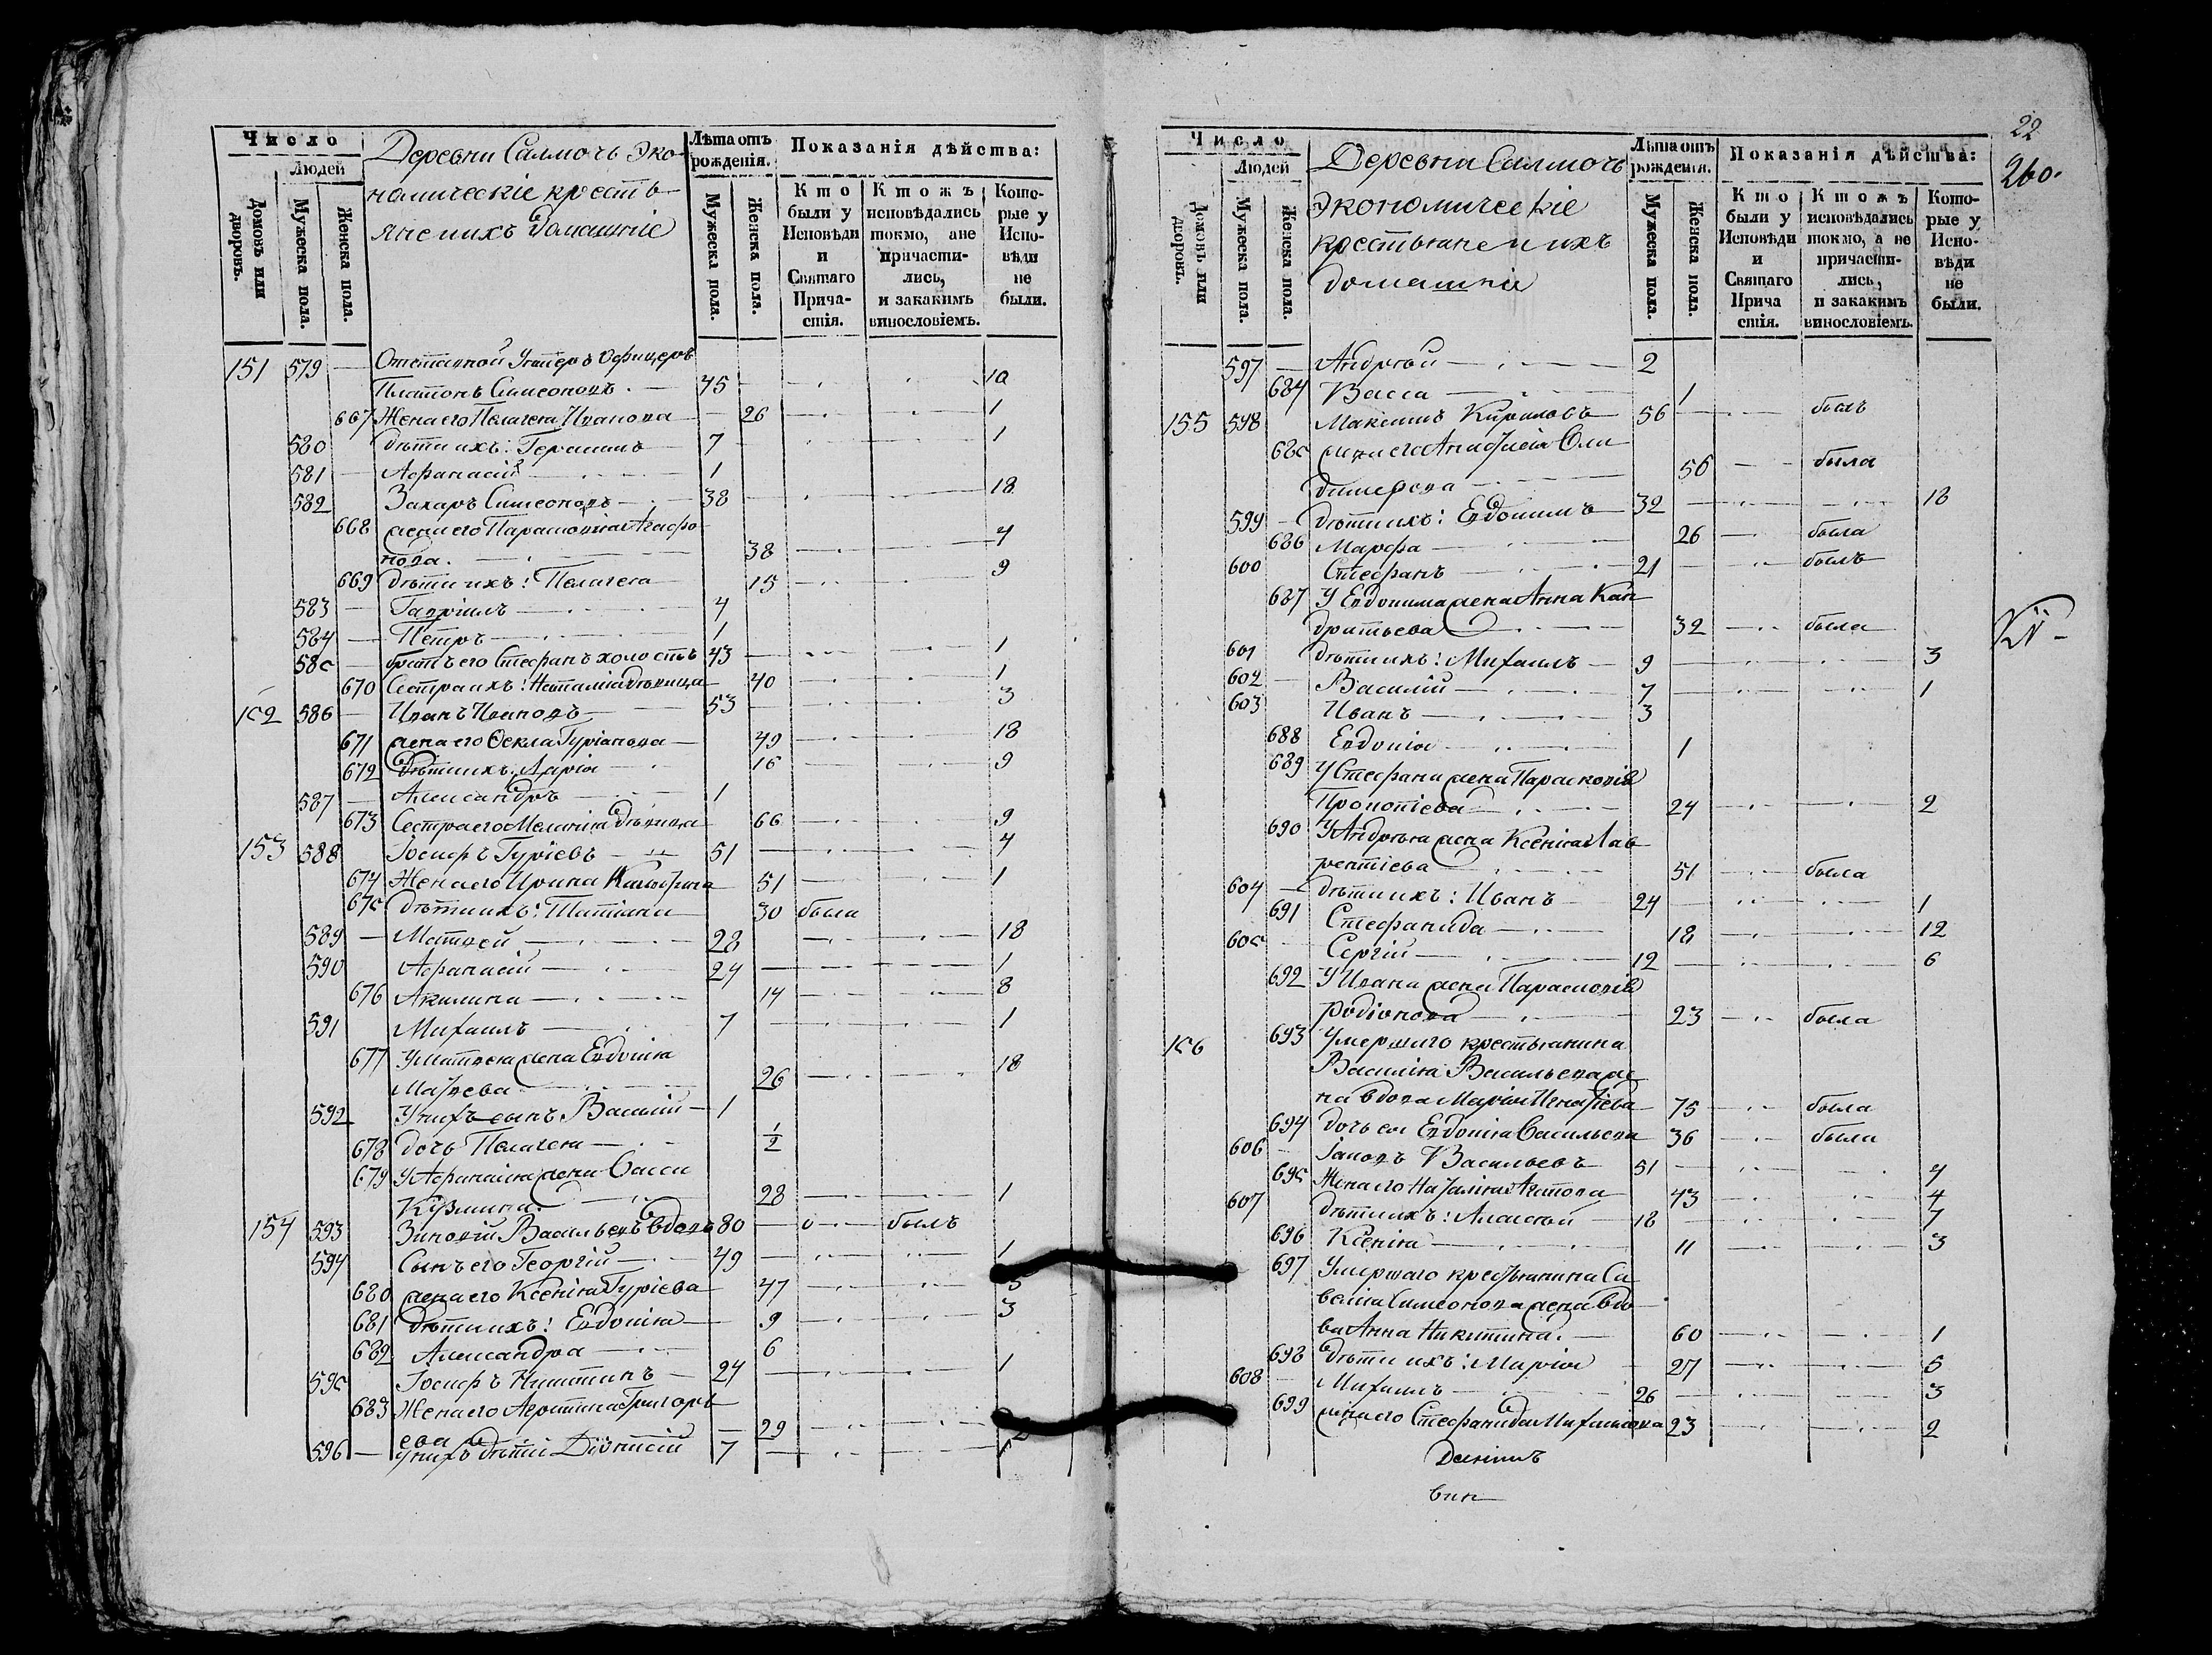 Число
Людей
Домовъ или дворовъ.
Мужеска пола.
Женска пола.
Деревни Салмочь Эко-
номическіе кресть-
яне и ихъ домашніе
Лѣта отъ рожденія.
Мужеска пола.
Женска пола.
Показанія дѣйства:
Кто были у Исповѣди и Святаго Прича-стія.
Ктожъ исповѣдались токмо, а не причасти-лись, и закакимъ винословіемъ.
Кото-рые у Испо-вѣди не были.
151 579 — Отставной Унтеръ Офицеръ
Платонъ Симеоновъ 45 10
667 Жена его Пелагея Иванова 26 1
580 дѣти ихъ: Герасимъ 7 1
581 Афанасій 1
582 Захаръ Симеоновъ 38 18
668 жена его Парасковія Агафо
нова 38 4
669 дѣти ихъ: Пелагея 15 9
583 Гавріилъ 4
584 Петръ 1
585 братъ его Стефанъ холостъ 43 1
670 Сестра ихъ: Наталія дѣвица 40 1
152 586 Иванъ Ивановъ 53 3
671 жена его Фекла Гуріанова 49 18
672 дѣти ихъ: Марія 16 9
587 Александръ 1
673 Сестра его Меланія дѣвица 66 9
153 588 Іосифъ Гуріевъ 51 4
674 Жена его Ирина 51 1
675 Дѣти ихъ: Татіана 30 была
589 Матвей 28 18
590 Афанасій 24 1
676 Акилина 14 8
591 Михаилъ 7 1
677 У Матвея жена Евдокія
26 18
592 У нихъ сынъ Василій 1
678 дочь Пелагея 1/2
679 У Афанасія жена Васса
28 1
154 593 Зиновій Васильевъ вдовъ 80 былъ
594 Сынъ его Георгій 49 1
680 жена его Ксенія Гуріева 47 5
681 дѣти ихъ: Евдокія 9 3
682 Александра 6
595 Іосифъ Никитинъ 24 1
683 Жена его Агрипина Григорь
ева 29 2
596 У нихъ дѣти Діонисій 7 1
22
260.
Число
Людей
Домовъ или дворовъ.
Мужеска пола.
Женска пола.
Деревни Салмочь
Экономическіе
крестьяне и ихъ
домашніе
Лѣта отъ рожденія.
Мужеска пола.
Женска пола.
Показанія дѣйства:
Кто были у Исповѣди и Святаго Прича стія.
Ктожъ исповѣдались токмо, а не причасти-лись, и закакимъ винословіемъ.
Кото-рые у Испо-вѣди не были.
597 Андрей 2
684 Васса 1
155 598 Максимъ Кириловъ 56 былъ
685 жена его Анафисія Вла
димерова 56 была
599 дѣти ихъ: Евдокимъ 32 18
686 Марфа 26 была
600 Стефанъ 21 былъ
687 У Евдокима жена Анна Кон
дратьева 32 была
601 дѣти ихъ: Михаилъ 9 3
602 Василій 7 1
603 Иванъ 3
688 Евдокія 1
689 У Стефана жена Парасковія
Прокопіева 24 2
690 У Андрея жена Ксенія Лав
рентіева 51 была
604 дѣти ихъ: Иванъ 24 1
691 Стефанида 18 12
605 Сергій 12 6
692 У Ивана жена Парасковія
Родіонова 23 была
156 693 Умершаго крестьянина
Василія Васильева же
на вдова Марія Игнатіева 75 была
694 дочь ея Евдокія Васильева 36 была
606 Іаковъ Васильевъ 51 4
695 Жена его Наталія 43 4
607 дѣти ихъ: Алексей 18 7
696 Ксенія 11 3
697 Умершаго крестьянина Са
велія Симеонова жена вдо
ва Анна Никитина 60 1
698 дѣти ихъ: Марія 27 5
608 Михаилъ 26 3
699 жена его Стефанида Михайлова 23 2